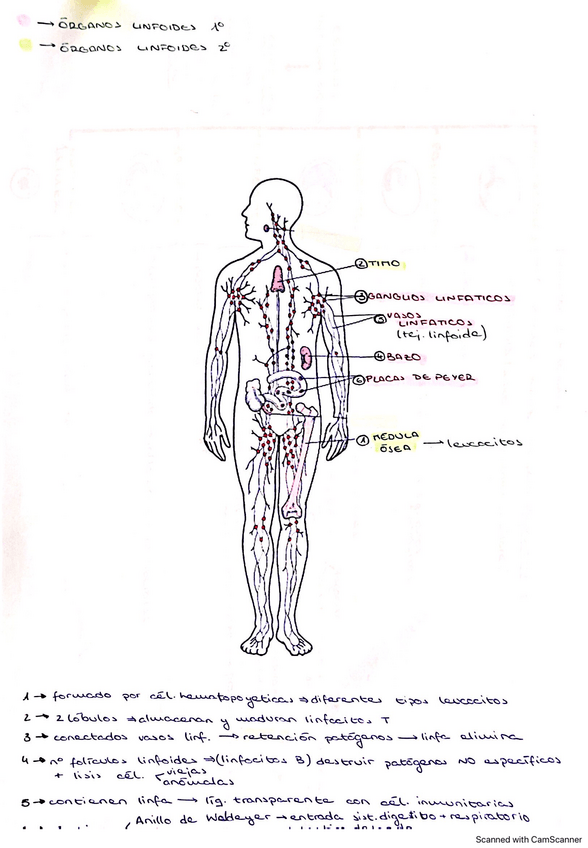 → ÓRGANOS LINFOIDES 1º
→ ÓRGANOS LINFOIDES 2º
② TIMO
③ GANGLIOS LINFÁTICOS
⑤ VASOS
LINFATICOS
(tej. linfoide)
④ BAZO
⑥ PLACAS DE PEYER
① MÉDULA
ÓSEA → leucocitos
1 → formado por cél. hematopoyeticas ⇒ diferentes tipos leucocitos
2 → 2 lóbulos ⇒ almacenan y maduran linfocitos T
3 → conectados vasos linf. → retención patógenos → linfa elimina
4 → nº folículos linfoides ⇒ (linfocitos B) destruir patógenos NO específicos
+ lisis cél. viejas
anómalas
5 → contienen linfa → líq. transparente con cél. inmunitarias
Anillo de Waldeyer → entrada sist. digestivo + respiratorio
Scanned with CamScanner